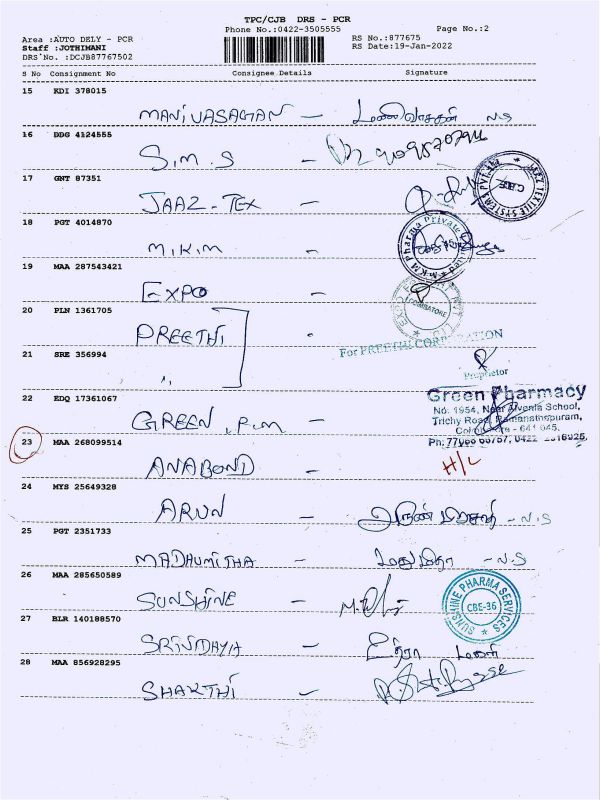 TPC/CJB DRS - PCR
Phone No.:0422-3505555
Page No.:2
Area :AUTO DELY - PCR
RS No.:877675
Staff :JOTHIMANI
RS Date:19-Jan-2022
DRS No. :DCJB87767502
S No Consignment No Consignee Details Signature
15 KDI 378015
MANIVASAGAN - மணிவாசகன் N.S
16 DDG 4124555
S.M.S -
17 GNT 87351
JAAZ-TEX -
18 PGT 4014870
M.K.M -
19 MAA 287543421
EXPO -
20 PLN 1361705
PREETHI
For PREETHI CORPORATION
21 SRE 356994
"
Proprietor
22 EDQ 17361067
GREEN P.M -
Green Pharmacy
No: 1954, Near Alvernia School,
Trichy Road, Ramanathapuram,
Coimbatore - 641 045.
23 MAA 268099514
ANABOND - H/L
24 MYS 25649328
ARUN - N.S
25 PGT 2351733
MADHUMITHA - மதுமிதா - N.S
26 MAA 285650589
SUNSHINE -
SUNSHINE PHARMA SERVICES
CBE-36
27 BLR 140188570
SRINIDAYIA -
28 MAA 856928295
SHAKTHI -